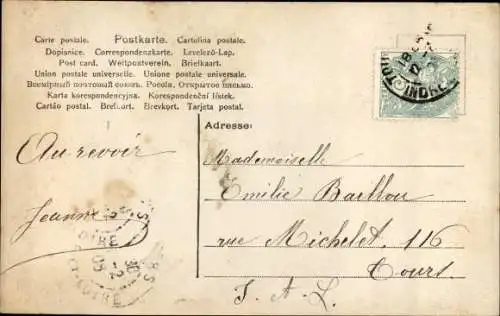 Carte postale. Postkarte. Cartolina postale.
Dopisnice. Correspondenzkarte. Levelező-Lap.
Post card. Weltpostverein. Briefkaart.
Union postale universelle. Unione postale universale.
Всемірный почтовый союзъ. Россія. Открытое письмо.
Karta korespondencyjna. Korespondenční lístek.
Cartão postal. Brefkort. Brevkort. Tarjeta postal.
Adresse:
Au revoir
Jeanne
Mademoiselle
Émilie Baillou
rue Michelet, 116
Tours
I. et L.
INDRE